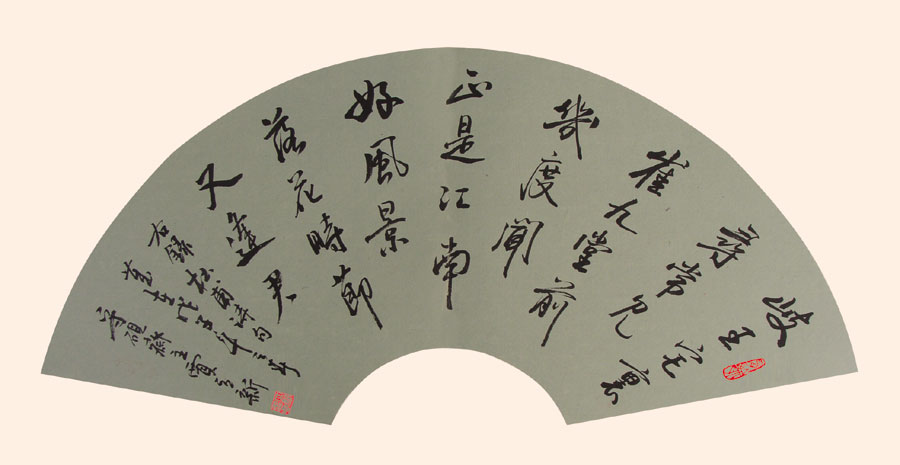 岐王宅裏
尋常見
崔九堂前
幾度聞
正是江南
好風景
落花時節
又逢君
右錄杜甫詩句
年
硯齋主
新